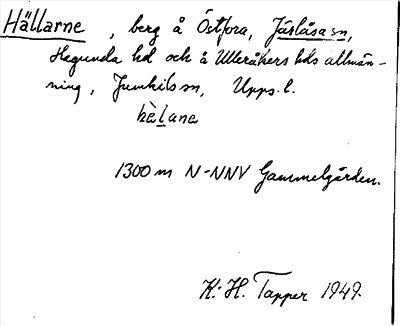 Hällarne, berg å Östfora, Järlåsa sn,
Hagunda hd och å Ulleråkers hds allmän-
ning, Jumkils sn, Upps. l.
hèlana
1300 m N-NNV Gammelgården.
K.-H. Tapper 1949.